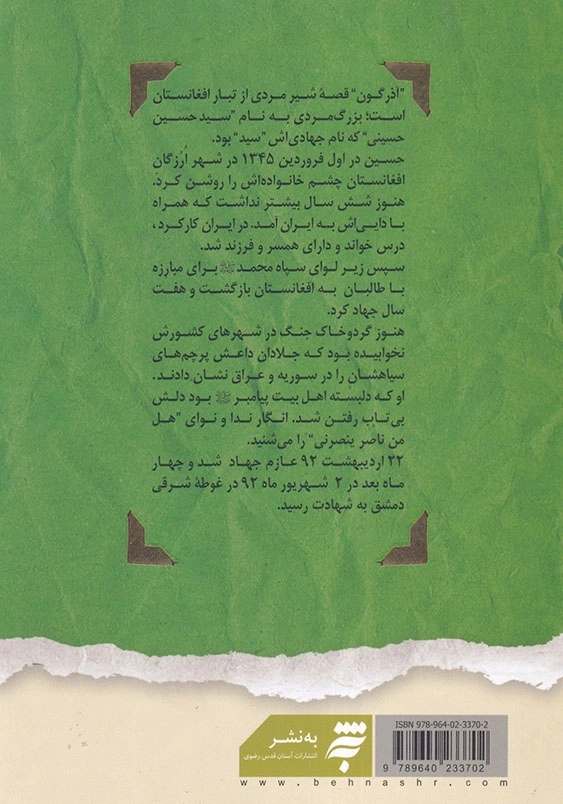 "آذرگون" قصهٔ شیر مردی از تبار افغانستان
است؛ بزرگ‌مردی به نام "سید حسین
حسینی" که نام جهادی‌اش "سید" بود.
حسین در اول فروردین ۱۳۴۵ در شهر اُرُزگان
افغانستان چشم خانواده‌اش را روشن کرد.
هنوز شش سال بیشتر نداشت که همراه
با دایی‌اش به ایران آمد، در ایران کار کرد،
درس خواند و دارای همسر و فرزند شد.
سپس زیر لوای سپاه محمد ﷺ برای مبارزه
با طالبان به افغانستان بازگشت و هفت
سال جهاد کرد.
هنوز گردوخاک جنگ در شهرهای کشورش
نخوابیده بود که جلادان داعش پرچم‌های
سیاهشان را در سوریه و عراق نشان دادند.
او که دلبسته اهل بیت پیامبر ﷺ بود دلش
بی‌تاب رفتن شد. انگار ندا و نوای "هل
من ناصر ینصرنی" را می‌شنید.
۲۲ اردیبهشت ۹۲ عازم جهاد شد و چهار
ماه بعد در ۲ شهریور ماه ۹۲ در غوطهٔ شرقی
دمشق به شهادت رسید.
به‌نشر
انتشارات آستان قدس رضوی
ISBN 978-964-02-3370-2
9 789640 233702
www.behnashr.com